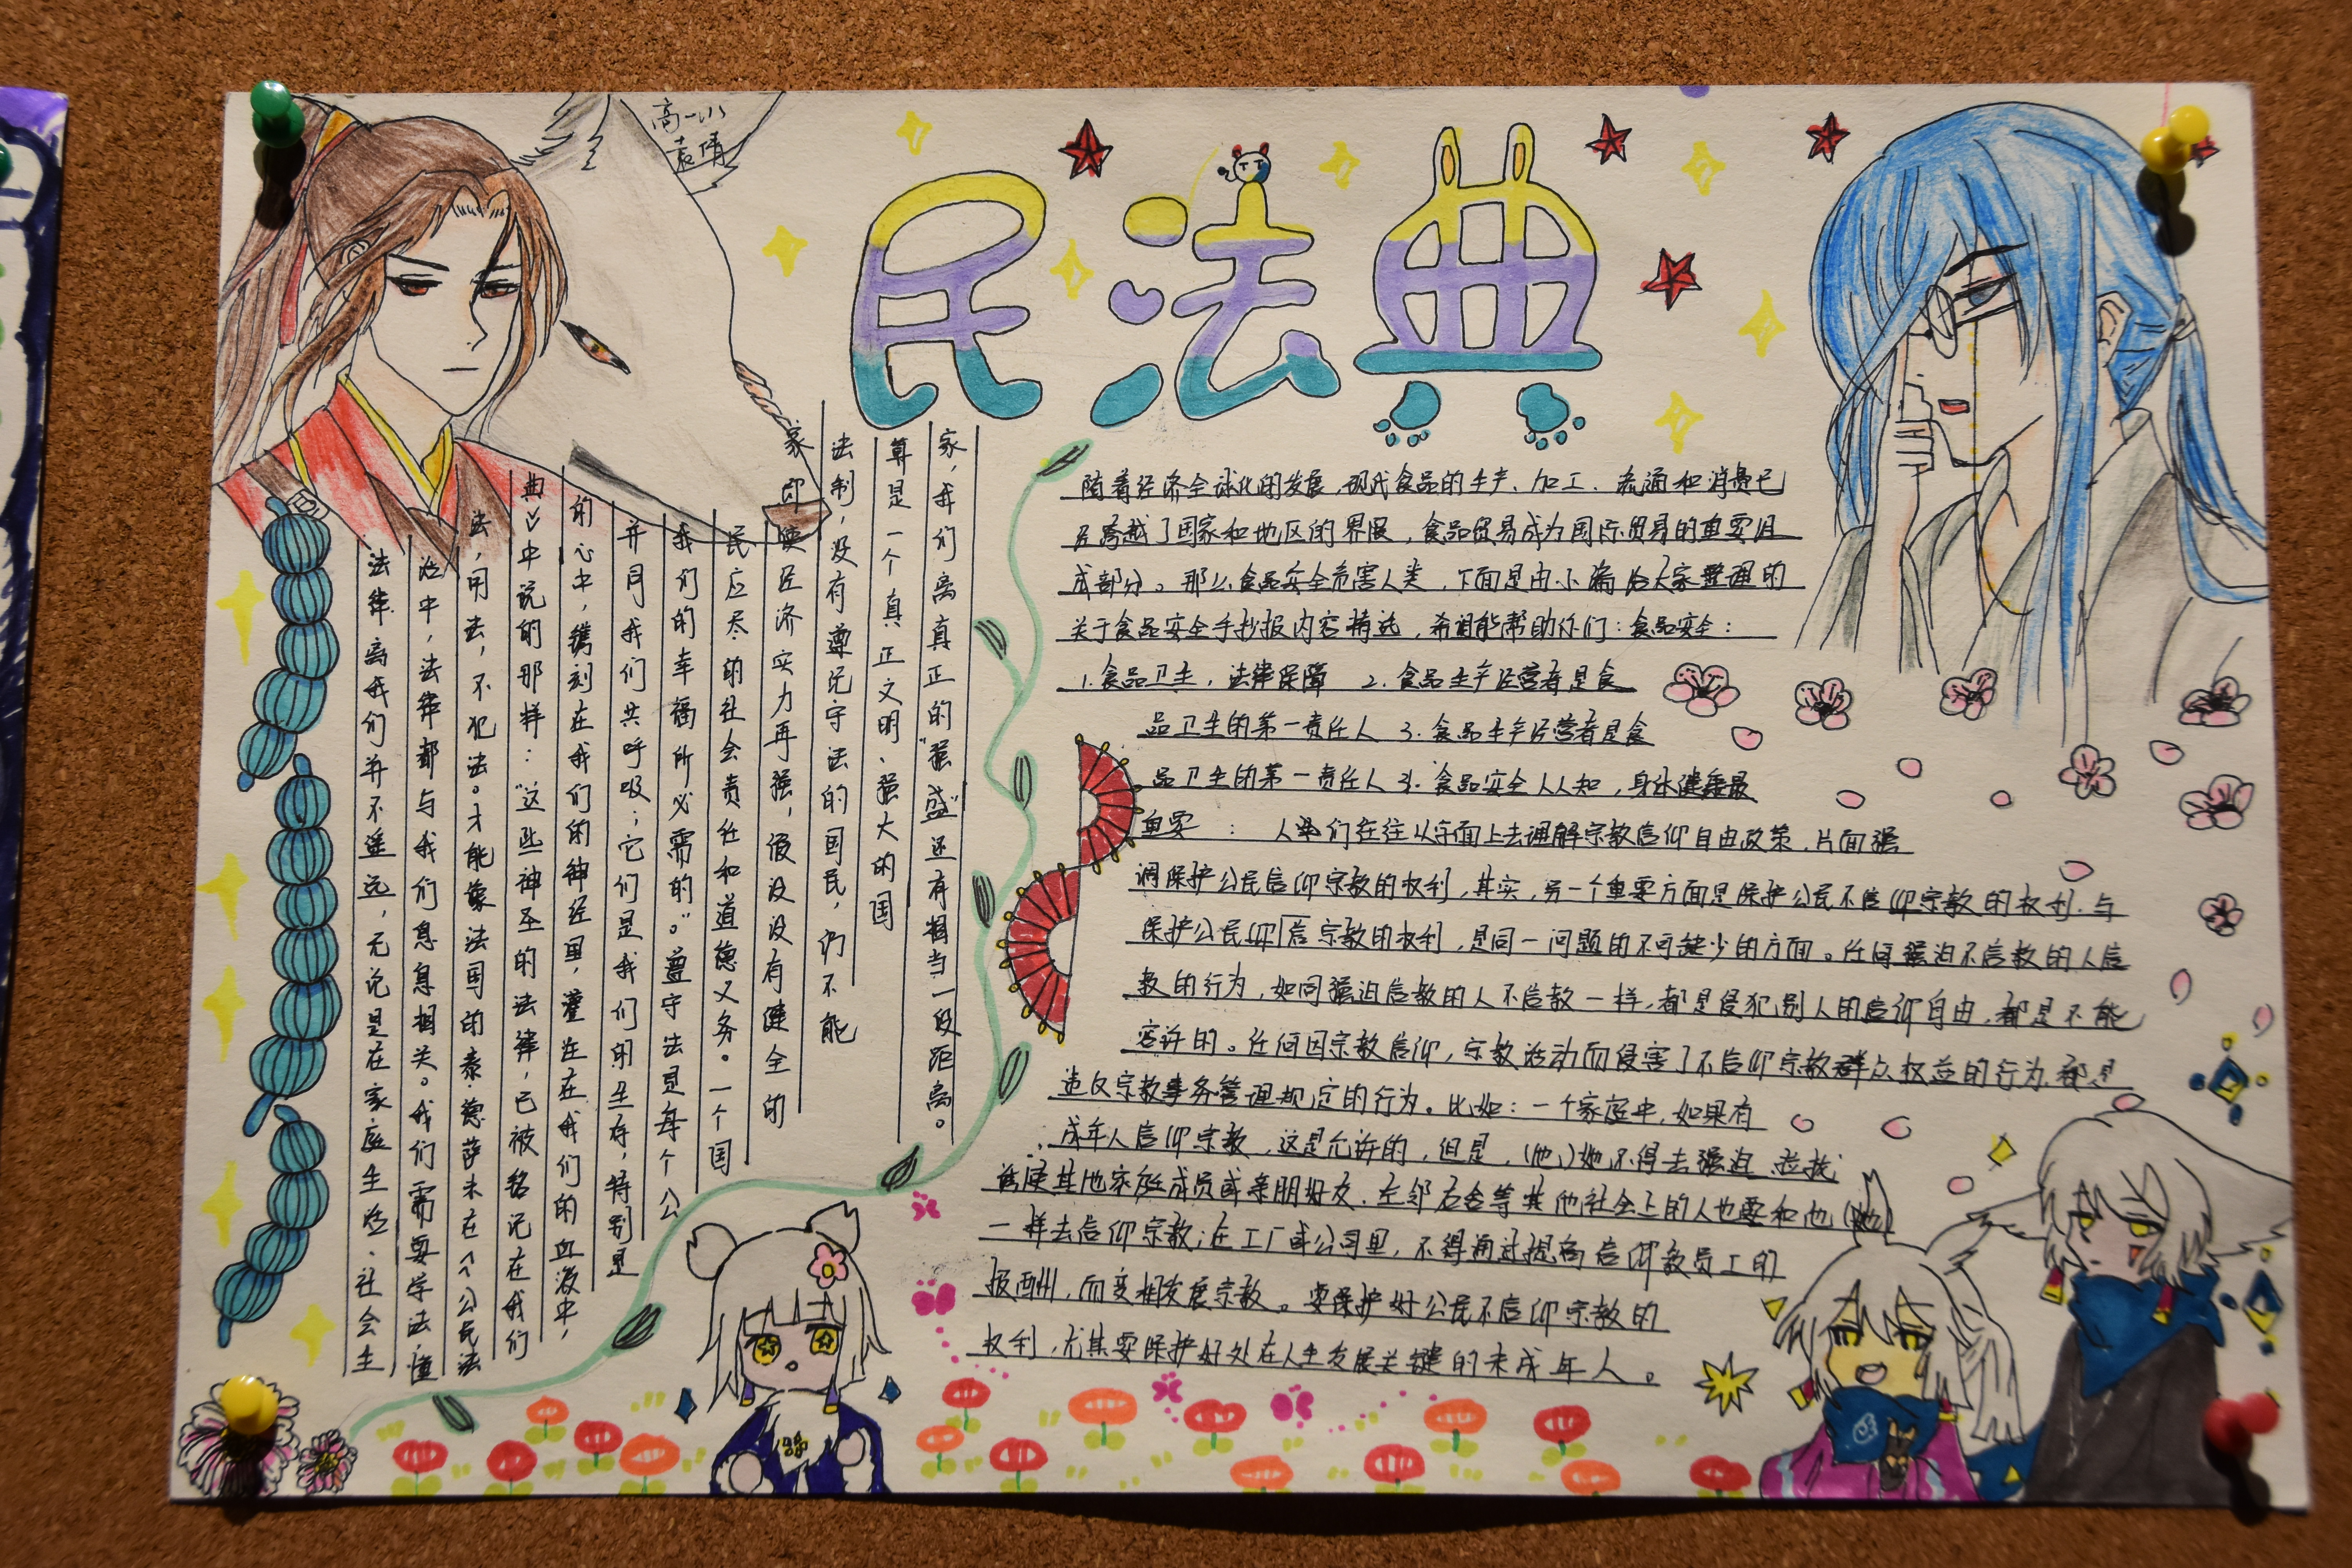 高一八
袁倩
民法典
法律离我们并不遥远，无论是在家庭生活、社会生
活中，法律都与我们息息相关。我们需要学法，懂
法，用法，不犯法。才能像法国的泰·德萨米在《公民法
典》中说的那样：“这些神圣的法律，已被铭记在我们
的心中，镌刻在我们的神经里，灌注在我们的血液中，
并同我们共呼吸；它们是我们的生存，特别是
我们的幸福所必需的。”遵守法是每个公
民应尽的社会责任和道德义务。一个国
家即使经济实力再强，假设没有健全的
法制，没有遵纪守法的国民，们不能
算是一个真正文明、强大的国
家，我们离真正的“强盛”还有相当一段距离。
随着经济全球化的发展，现代食品的生产、加工、流通和消费已
经跨越了国家和地区的界限，食品贸易成为国际贸易的重要组
成部分。那么食品安全危害人类，下面是由小编给大家整理的
关于食品安全手抄报内容精选，希望能帮助你们：食品安全：
1.食品卫生，法律保障 2.食品生产经营者是食
品卫生的第一责任人 3.食品生产经营者是食
品卫生的第一责任人 3.食品安全人人知，身体健康最
重要：人们往往从字面上去理解宗教信仰自由政策，片面强
调保护公民信仰宗教的权利，其实，另一个重要方面是保护公民不信仰宗教的权利，与
保护公民仰信宗教的权利，是同一问题的不可缺少的方面。任何强迫不信教的人信
教的行为，如同强迫信教的人不信教一样，都是侵犯别人的信仰自由，都是不能
容许的。任何因宗教信仰，宗教活动而侵害了不信仰宗教群众权益的行为，都是
违反宗教事务管理规定的行为。比如：一个家庭中，如果有
成年人信仰宗教，这是允许的，但是，(他)她不得去强迫 拉拢
诱使其他家庭成员或亲朋好友、左邻右舍等其他社会上的人也要和他(她)
一样去信仰宗教；在工厂或公司里，不得通过提高信仰教员工的
报酬，而变相发展宗教。要保护好公民不信仰宗教的
权利，尤其要保护好处在人生发展关键的未成年人。